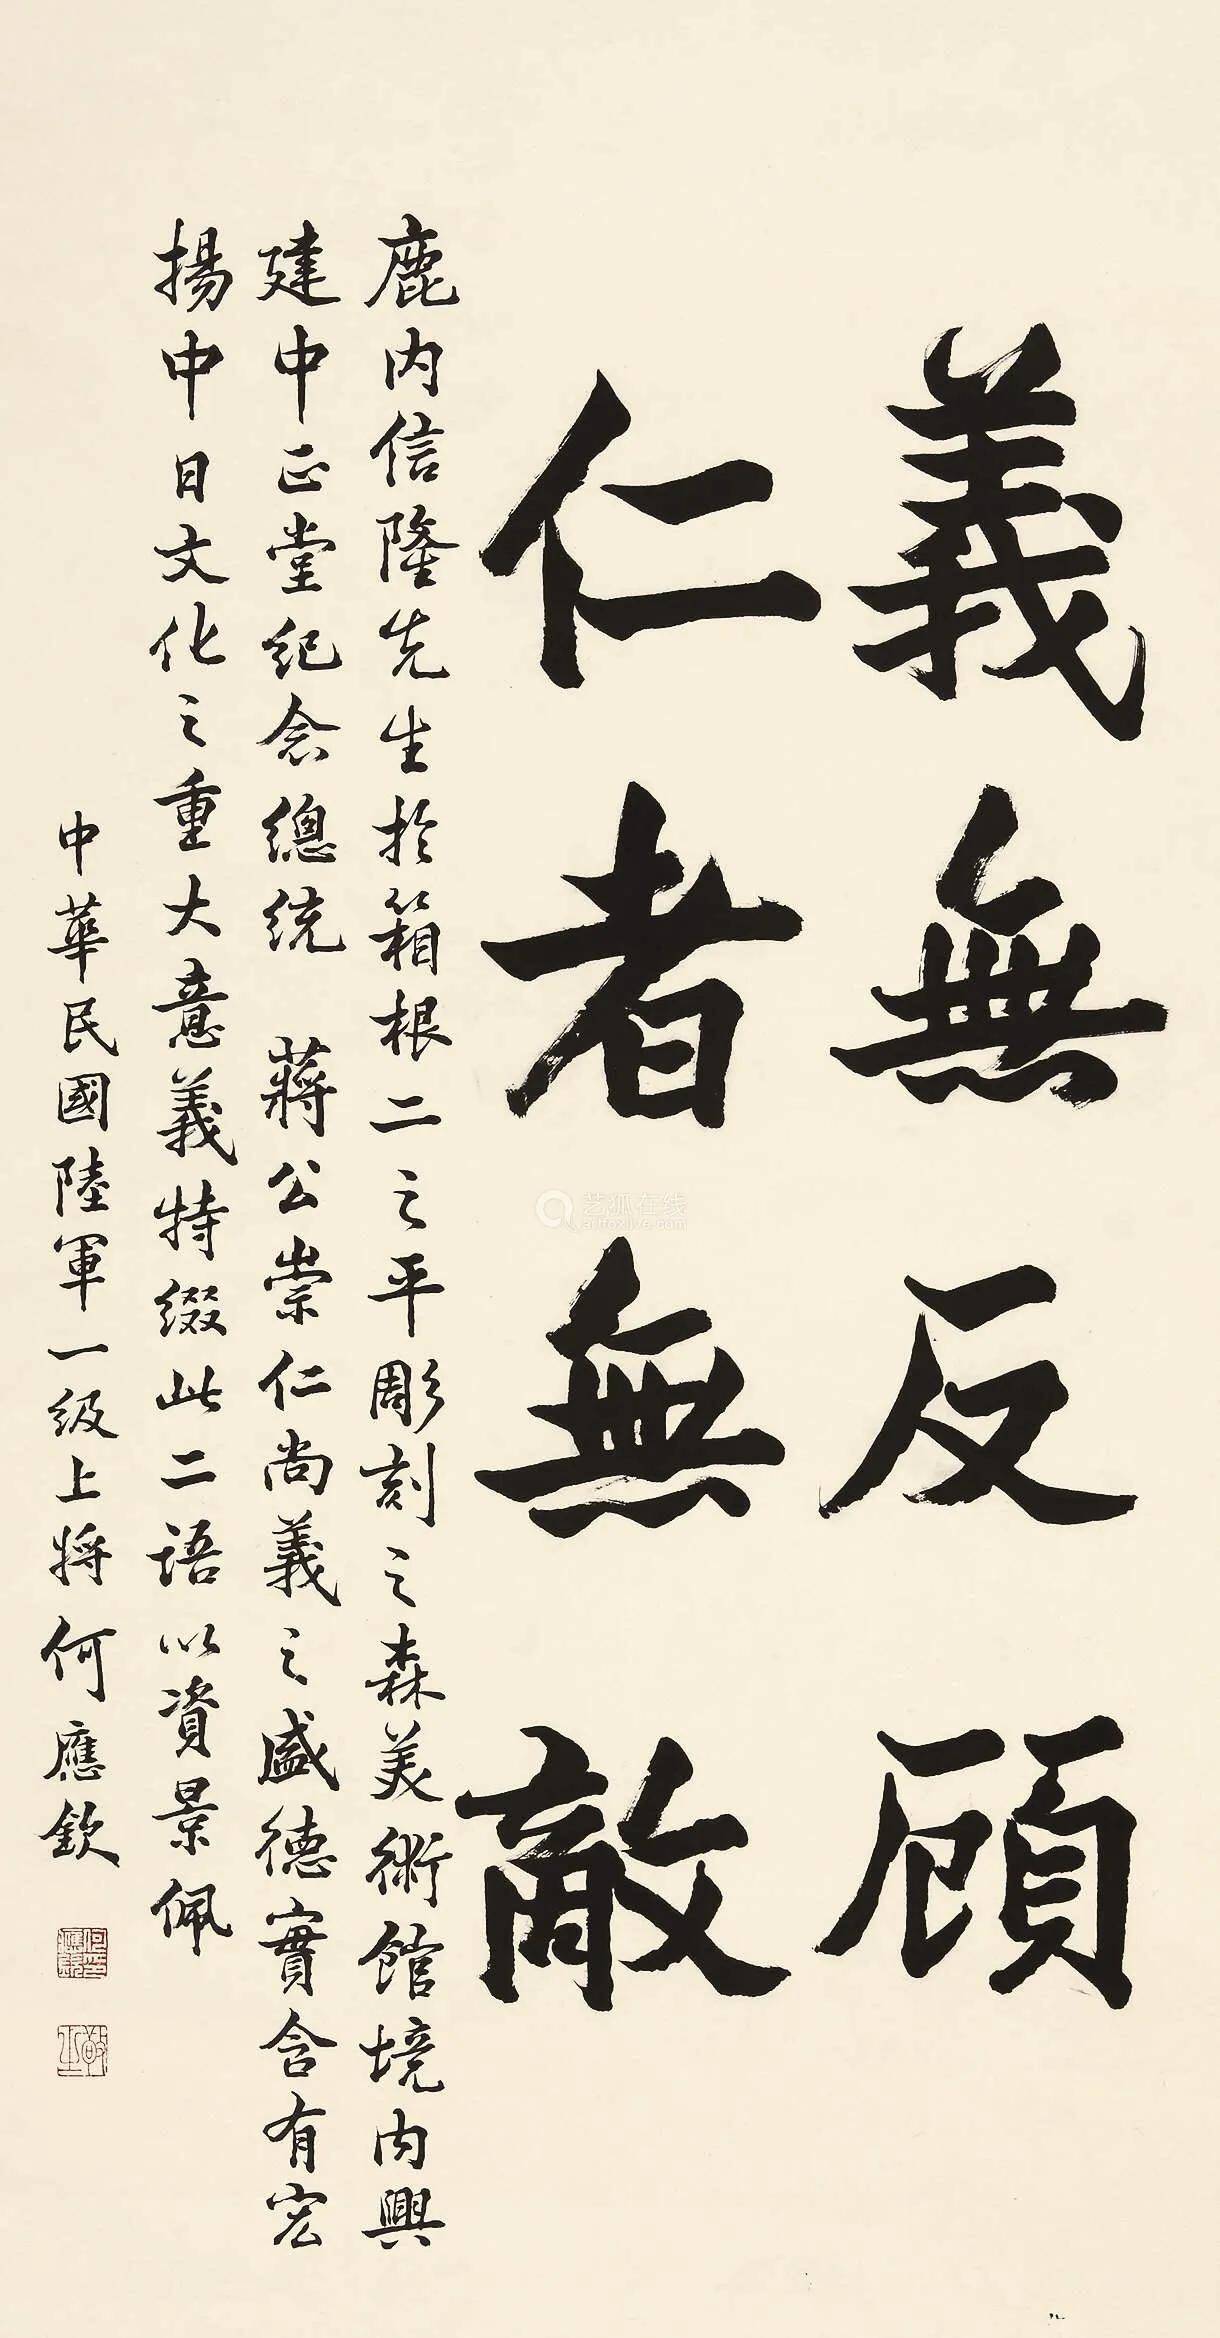 義無反顧
仁者無敵
鹿內信隆先生於箱根二之平彫刻之森美術館境内興
建中正堂紀念總統 蔣公崇仁尚義之盛德實含有宏
揚中日文化之重大意義特綴此二語以資景佩
中華民國陸軍一級上將何應欽
艺狐在线
artfoxlive.com